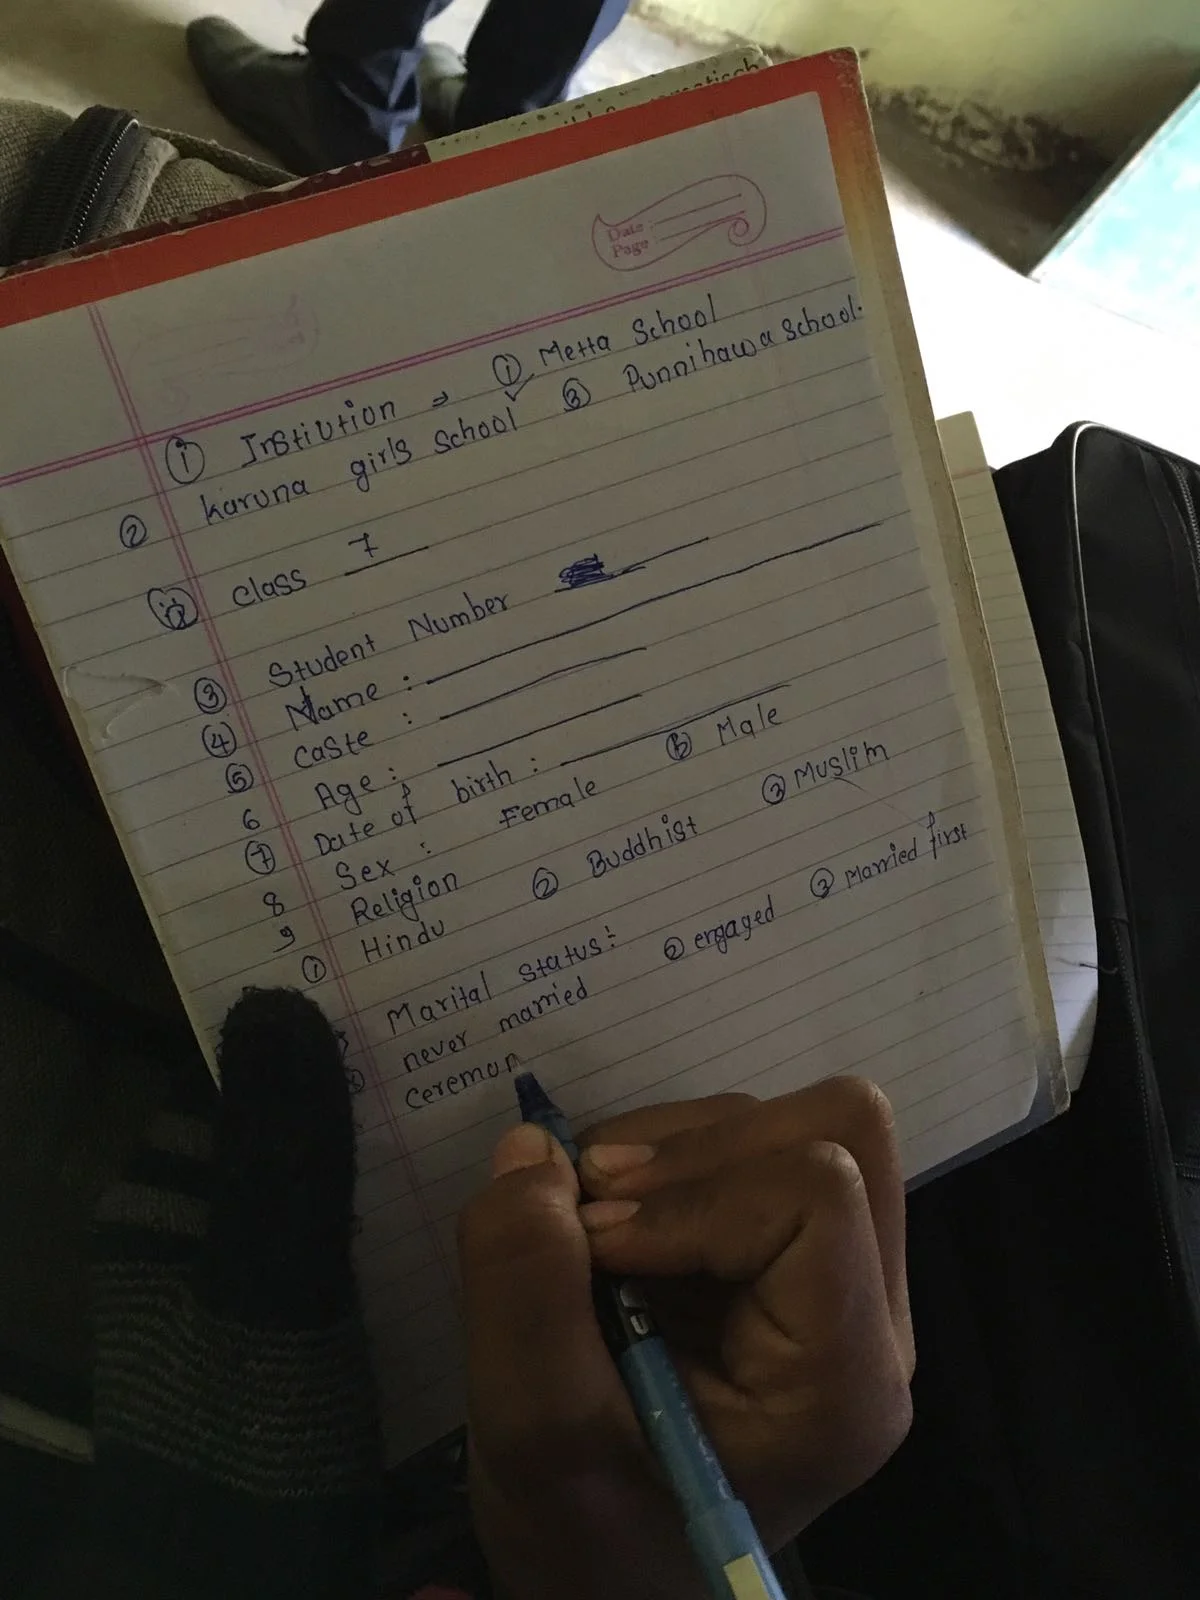 Date :
Page :
① Instiution ⇒ ① Metta School
② karuna girls school ③ Punnihawa School.
class 7
③ Student Number
④ Name :
⑤ caste :
6 Age :
⑦ Date of birth :
8 Sex : Female ⓑ Male
9 Religion
① Hindu ② Buddhist ③ Muslim
Marital status:
never married ② engaged ③ Married first
ceremon